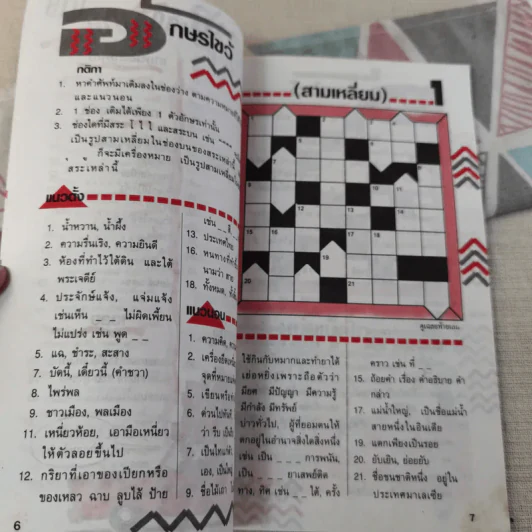 อักษรไขว้
กติกา
1. หาคำศัพท์มาเติมลงในช่องว่าง ตามความหมาย
และแนวนอน
2. 1 ช่อง เติมได้เพียง 1 ตัวอักษรเท่านั้น
3. ช่องใดที่มีสระ ใ ไ โ และสระบน เช่น
เป็นรูปสามเหลี่ยมในช่องบนของสระเหล่านี้
ก็จะมีเครื่องหมาย เป็นรูปสามเหลี่ยม
สระเหล่านี้
แนวตั้ง
1. น้ำหวาน, น้ำผึ้ง
2. ความรื่นเริง, ความยินดี
3. ห้องที่ทำไว้ใต้ดิน และใต้
พระเจดีย์
4. ประจักษ์แจ้ง, แจ่มแจ้ง
เช่นเห็น _ _ ไม่ผิดเพี้ยน
ไม่แปร่ง เช่น พูด _ _
5. แฉ, ชำระ, สะสาง
7. บัดนี้, เดี๋ยวนี้ (คำชวา)
8. ไพร่พล
9. ชาวเมือง, พลเมือง
11. เหนี่ยวห้อย, เอามือเหนี่ยว
ให้ตัวลอยขึ้นไป
12. กริยาที่เอาของเปียกหรือ
ของเหลว ฉาบ ลูบไล้ ป้าย
เช่น _ _ สี
13. ประเทศไทย
16. หนทาง
นามว่า สาย
18. ทั้งหมด,
แนวนอน
1. ความคิด,
2. เครื่อง
จุดที่หมาย
5. เขียนหรือ
6. ด่วนไปทันที
ว่า รีบ
7. เป็นไทแก่ตัว
เอง, เป็นใหญ่
9. ชื่อไม้เถา
6
(สามเหลี่ยม)
1
1
2
3
4
5
6
7
8
9
10
11
12
13
14
15
16
17
18
19
20
21
ดูเฉลยท้ายเล่ม
ใช้กินกับหมากและทำยาได้
เย่อหยิ่งเพราะถือตัวว่า
มียศ มีปัญญา มีความรู้
มีกำลัง มีทรัพย์
บ่าวทั่วไป, ผู้ที่ยอมตนให้
ตกอยู่ในอำนาจสิ่งใดสิ่งหนึ่ง
เช่น เป็น _ _ การพนัน,
เป็น _ _ ยาเสพย์ติด
ทาง, ทิศ เช่น _ _ ใต้, ครั้ง
คราว เช่น ที่ _ _
15. ถ้อยคำ เรื่อง คำอธิบาย คำ
กล่าว
17. แม่น้ำใหญ่, เป็นชื่อแม่น้ำ
สายหนึ่งในอินเดีย
19. แตกเพียงเป็นรอย
20. ยับเยิน, ย่อยยับ
21. ชื่อชนชาติหนึ่ง อยู่ใน
ประเทศมาเลเซีย
7